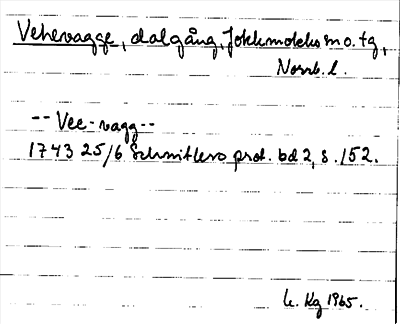 Vehevagge, dalgång, Jokkmokks m o. tg,
Norrb. l.
-- Vee-vagg --
1743 25/6 Schnitlers prot. bd 2, s. 152.
u. Kg 1965.